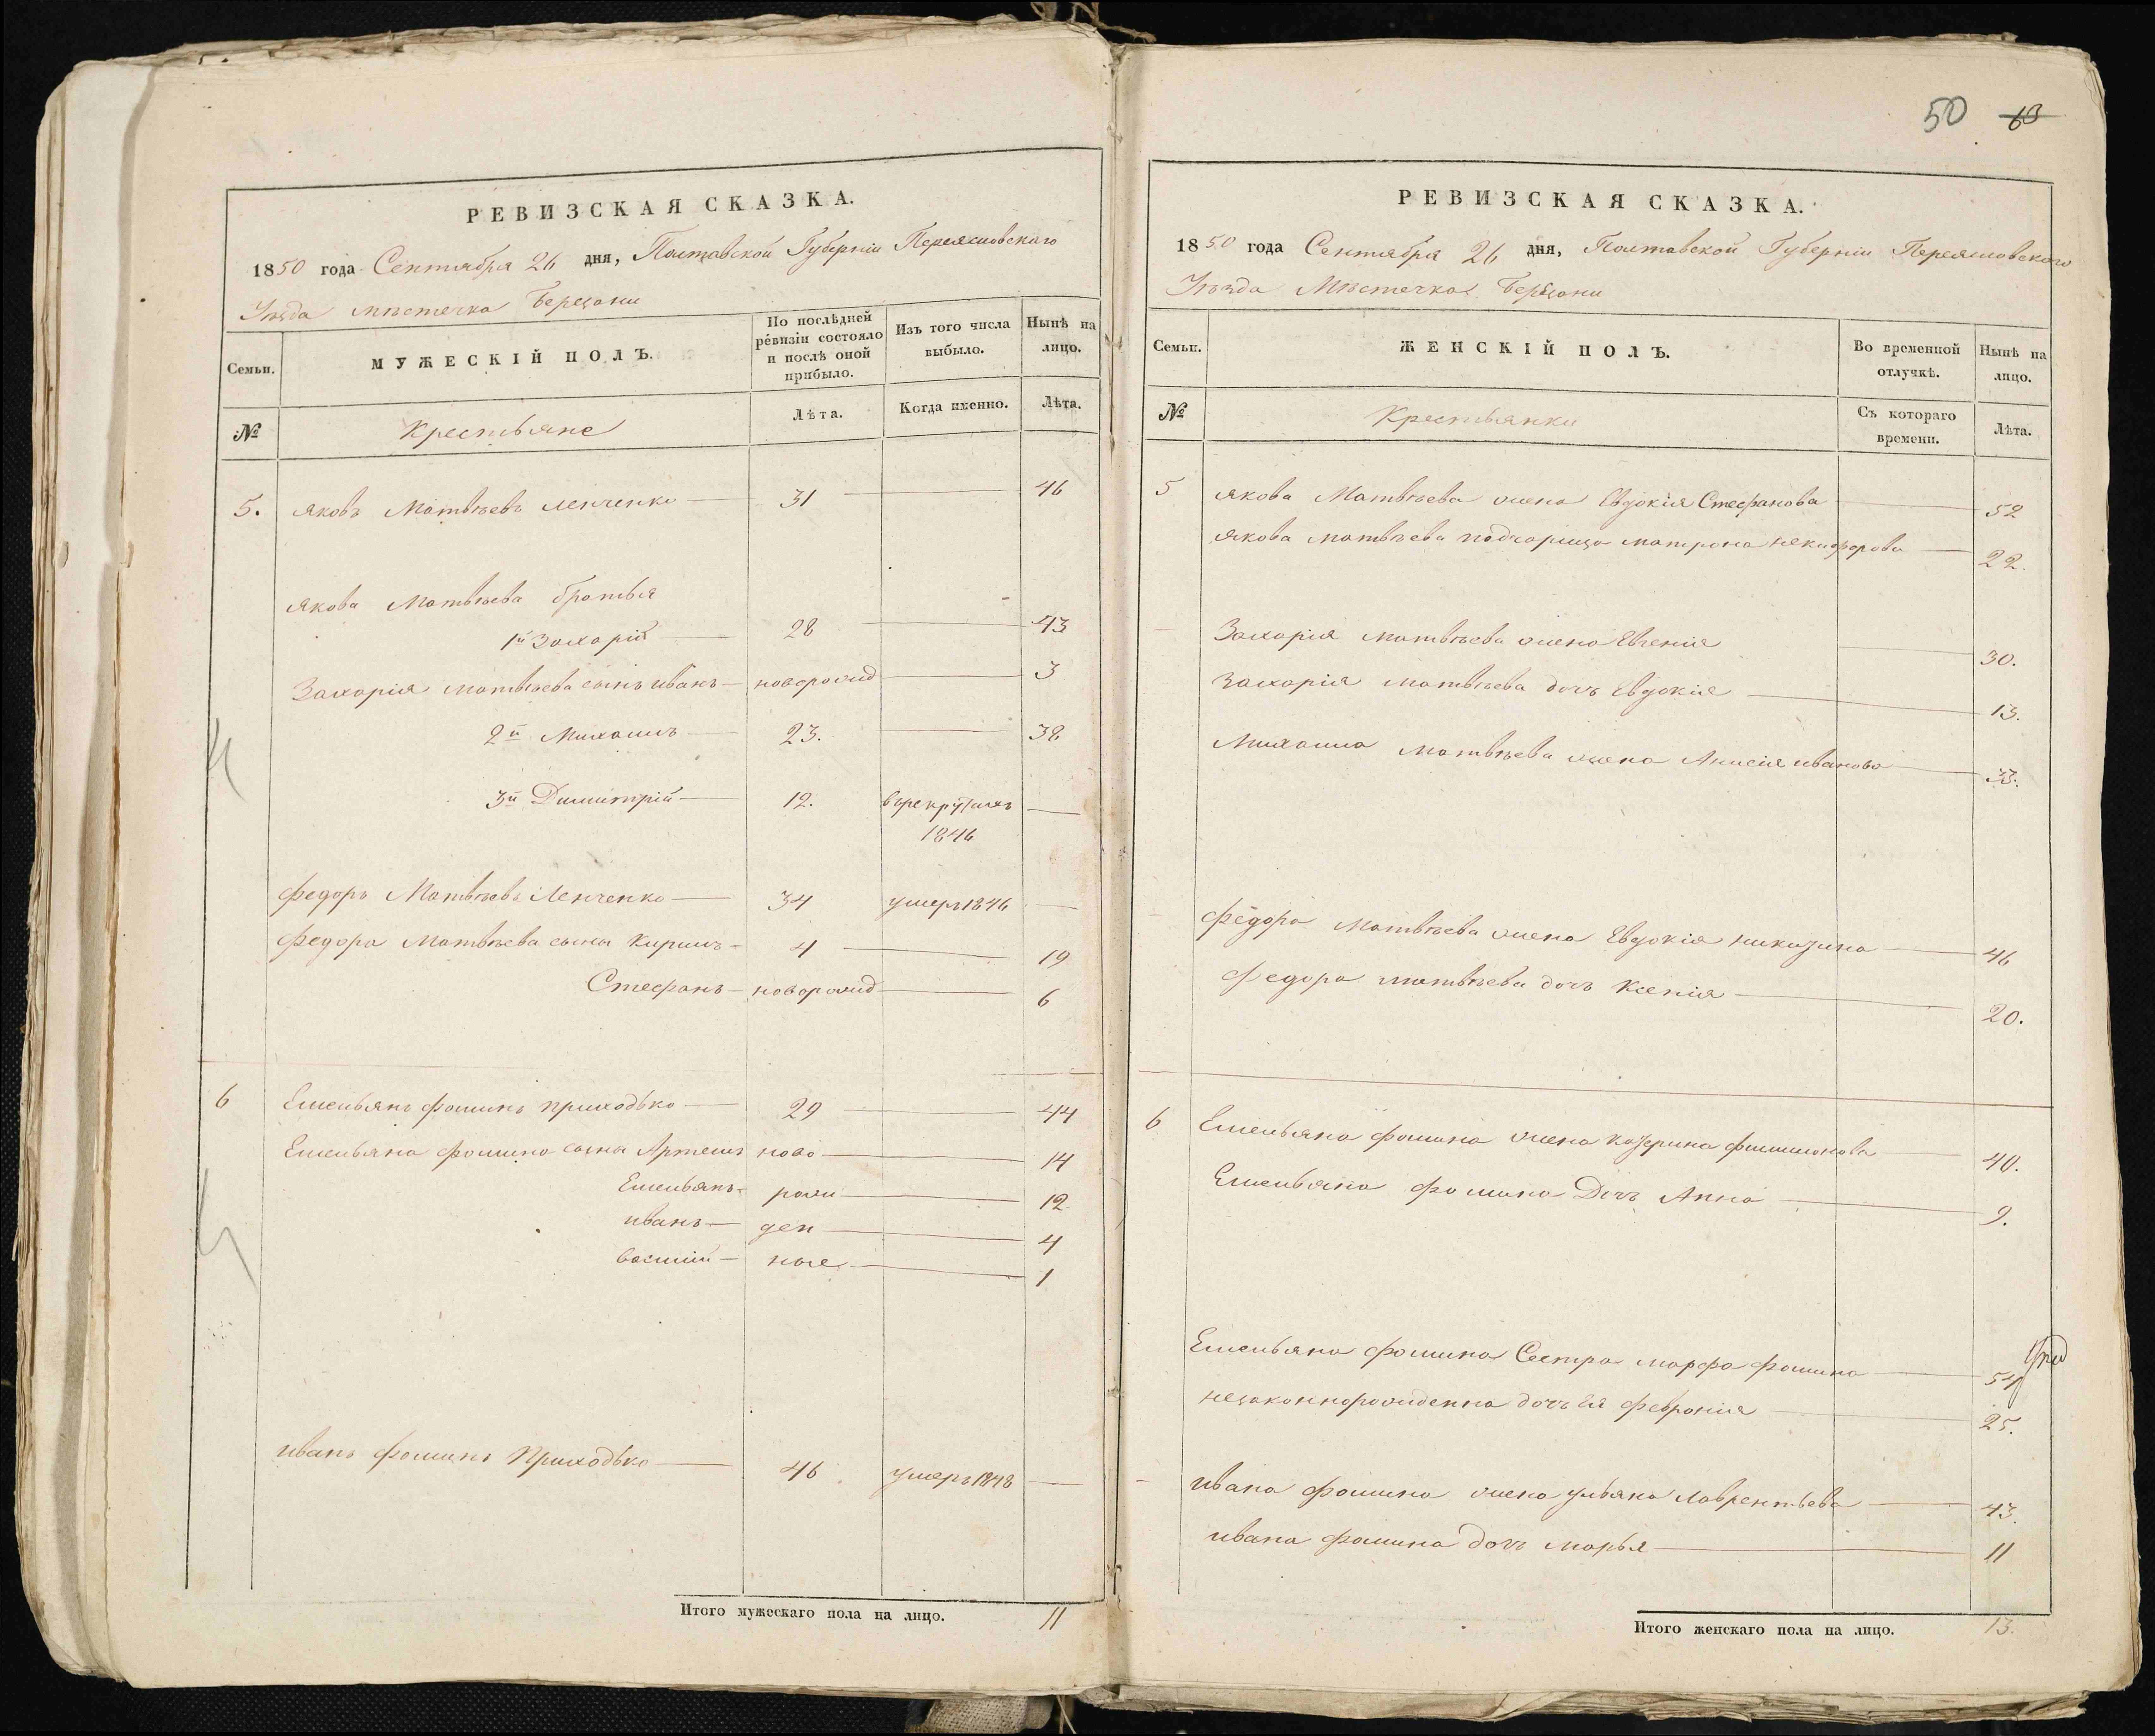 РЕВИЗСКАЯ СКАЗКА.
1850 года Сентября 26 дня, Полтавской Губерніи Переясловскаго
Уѣзда мѣстечка Березани
Семьи. МУЖЕСКІЙ ПОЛЪ. По послѣдней ревизіи состояло и послѣ оной прибыло. Изъ того числа выбыло. Нынѣ на лицо.
№ Крестьяне Лѣта. Когда именно. Лѣта.
5. Яковъ Матвѣевъ Ленченко 31 46
Якова Матвѣева братья
1й Захарій 28 43
Захарія Матвѣева сынъ Иванъ новорожд 3
2й Михаилъ 23. 38
3й Димитрій 12. в рекрутахъ
1846
Федоръ Матвѣевъ Ленченко 34 умеръ 1846
Федора Матвѣева сыны Кирилъ 4 19
Стефанъ новорожд 6
6 Емельянъ Фоминъ Приходько 29 44
Емельяна Фомина сыны Артемъ ново 14
Емельянъ рож 12
Иванъ ден 4
Василій ные 1
Иванъ Фоминъ Приходько 46 умеръ 1848
Итого мужескаго пола на лицо. 11
50 63
РЕВИЗСКАЯ СКАЗКА.
1850 года Сентября 26 дня, Полтавской Губерніи Переясловскаго
Уѣзда Мѣстечка Березани
Семьи. ЖЕНСКІЙ ПОЛЪ. Во временной отлучкѣ. Нынѣ на лицо.
№ Крестьянки Съ котораго времени. Лѣта.
5 Якова Матвѣева жена Евдокія Стефанова 52
Якова Матвѣева подчерица Матрона Некифорова 22.
Захарія Матвѣева жена Евгенія 30.
Захарія Матвѣева дочь Евдокія 13.
Михаила Матвѣева жена Анисія Иванова 33.
Федора Матвѣева жена Евдокія Никитина 46
Федора Матвѣева дочь Ксенія 20.
6 Емельяна Фомина жена Катерина Филимонова 40.
Емельяна Фомина Дочь Анна 9.
Емельяна Фомина Сестра Марфа Фомина 54
незаконнорожденна дочь ея Февронія 25.
Ивана Фомина жена Ульяна Лаврентьева 43.
Ивана Фомина дочь Марья 11
Итого женскаго пола на лицо. 13.